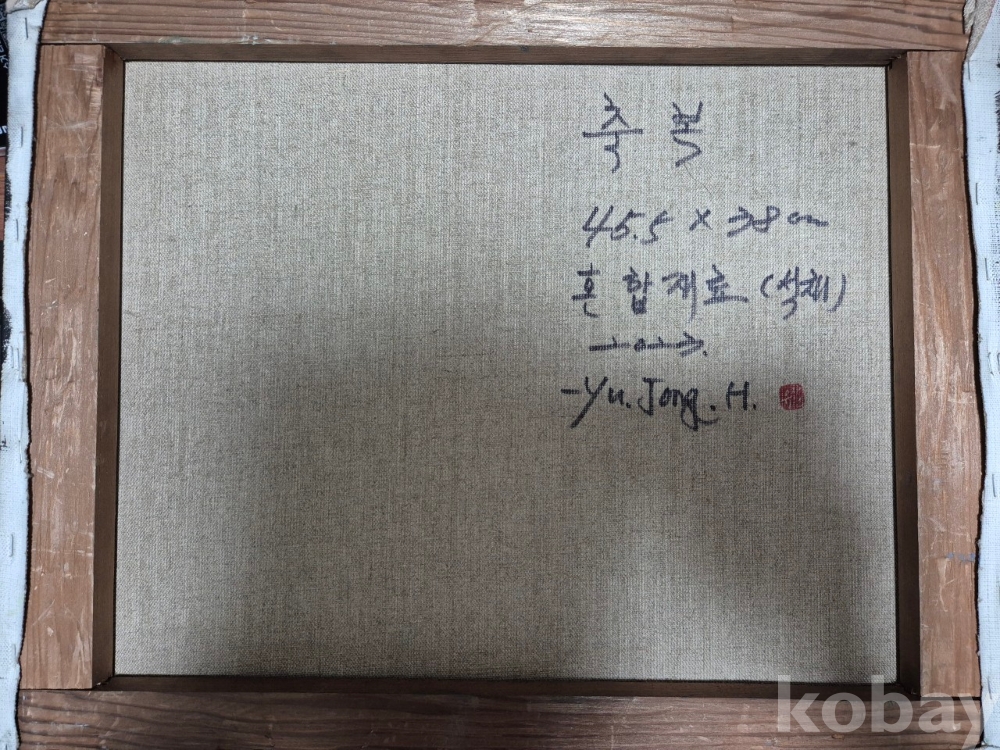 축복
45.5 x 38 cm
혼합재료 (석채)
-Yu. Jong. H.
kobay